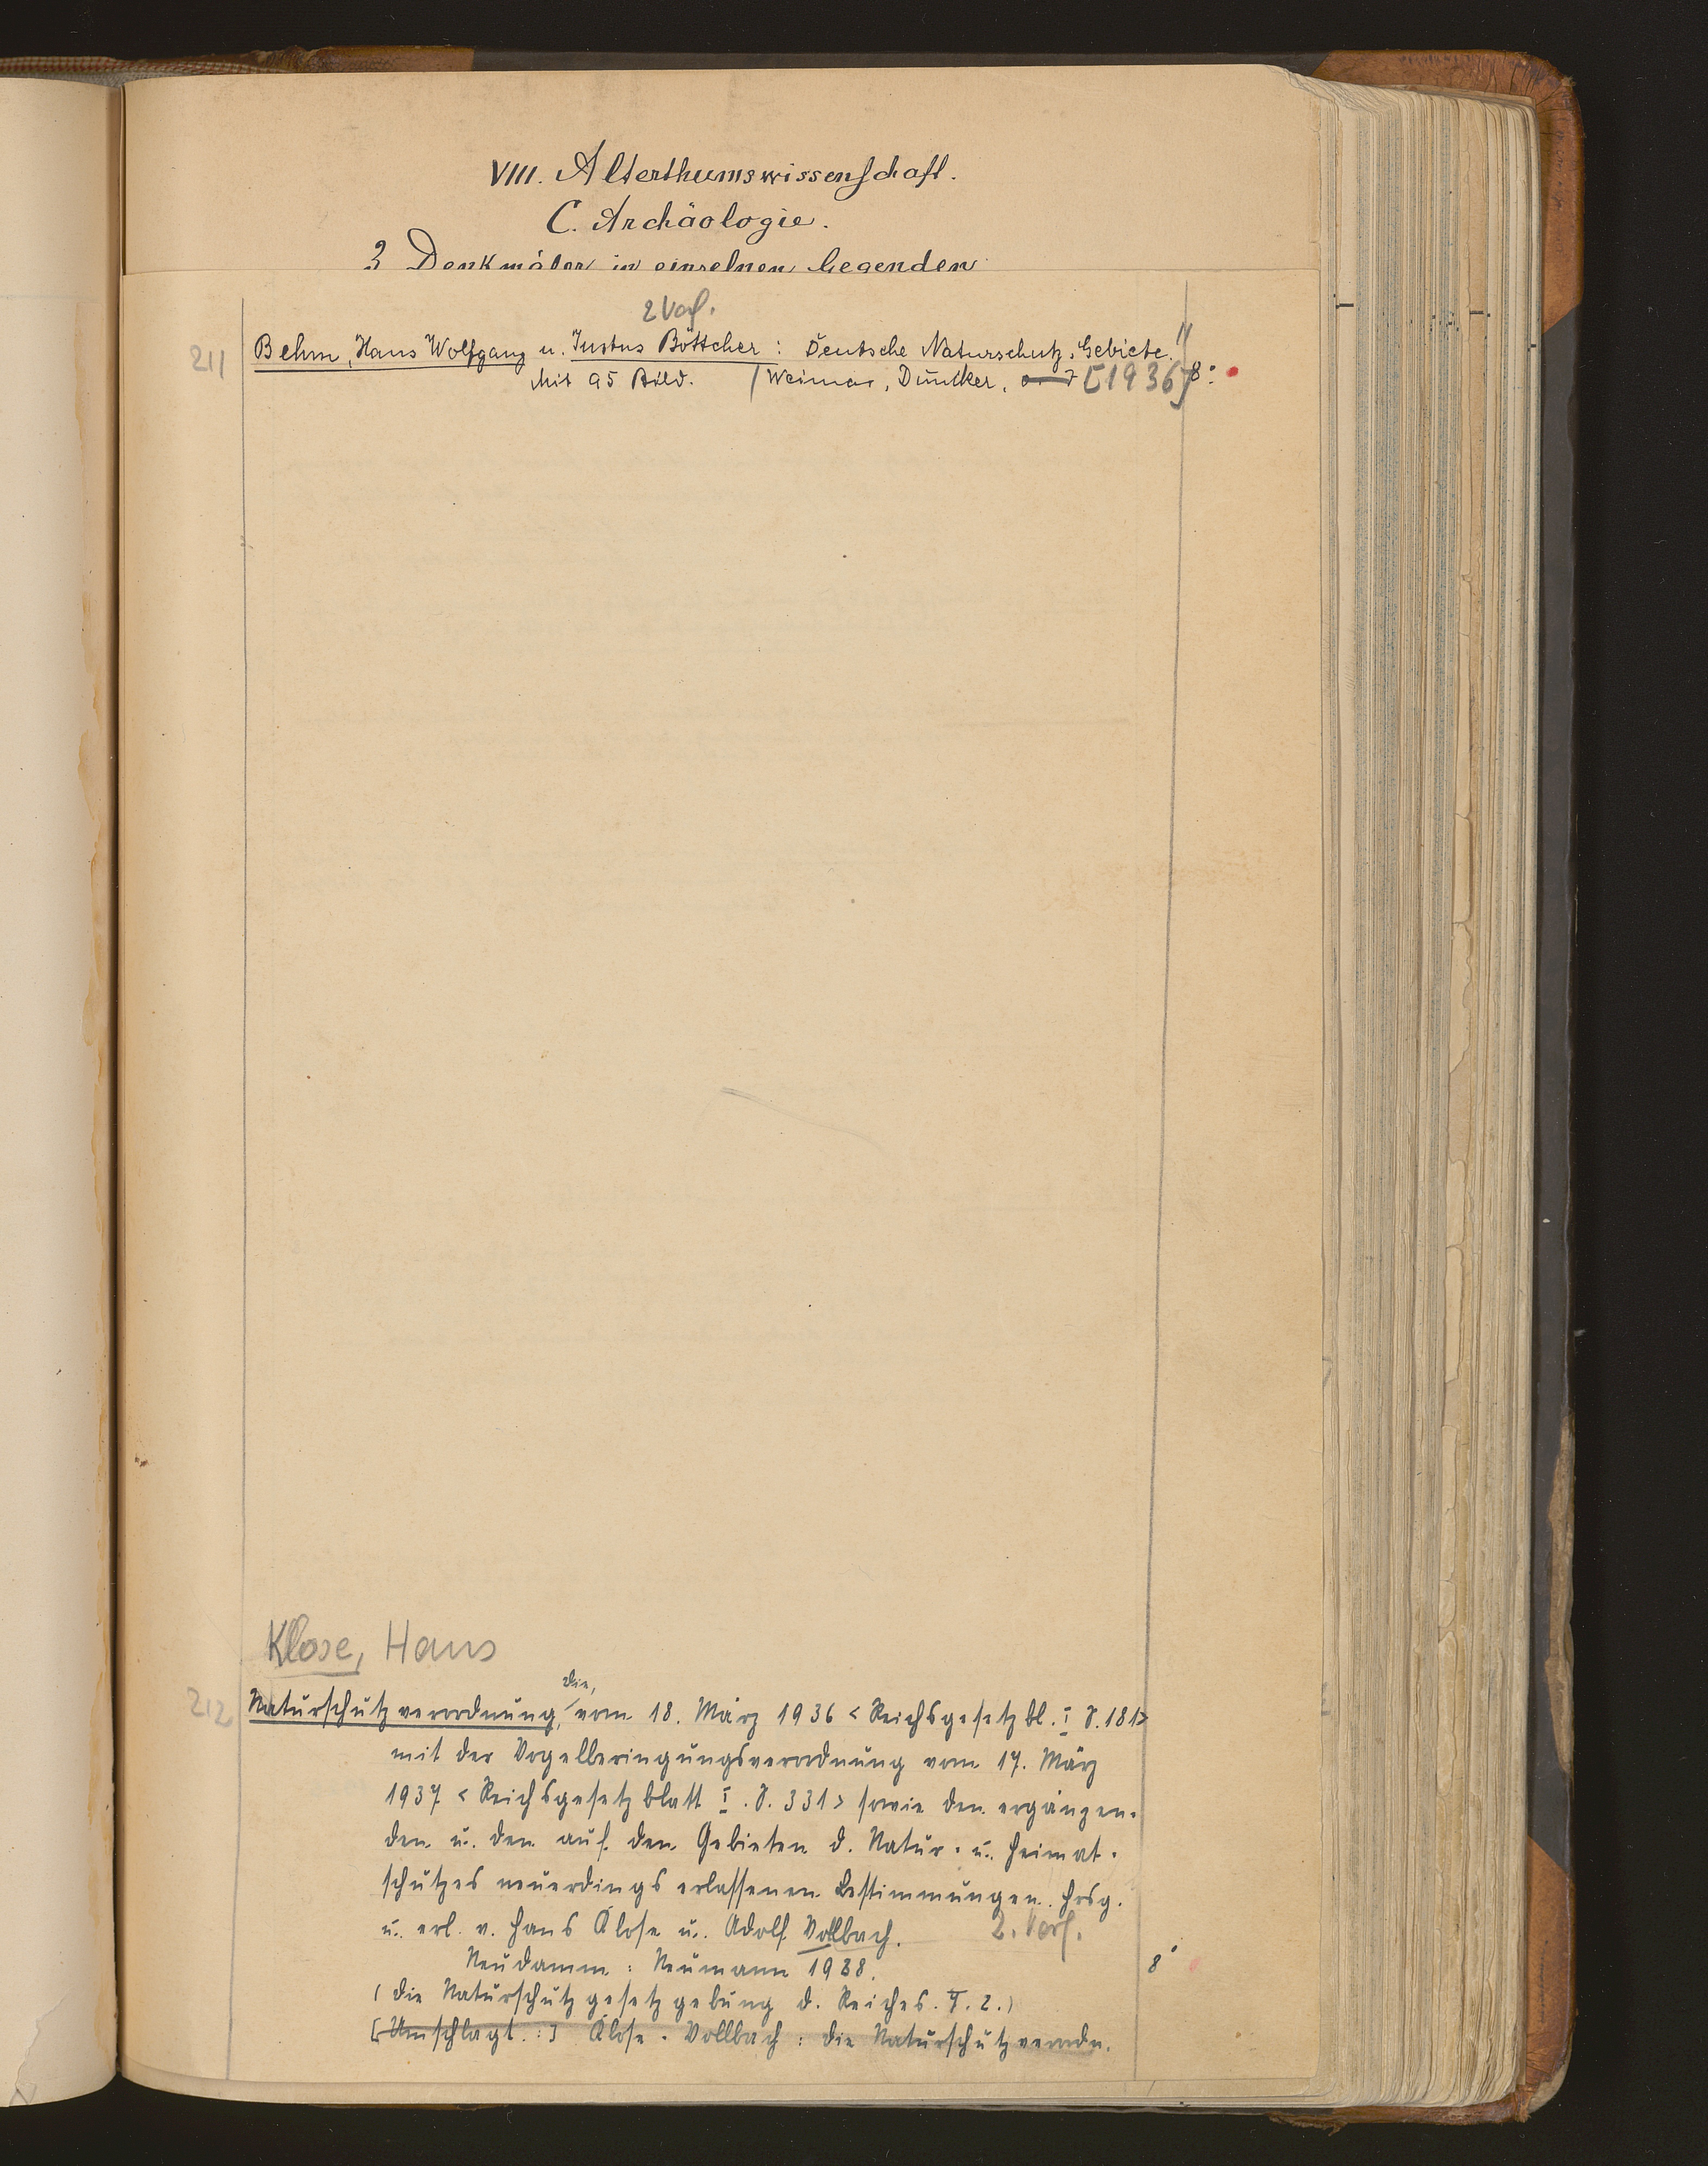 VIII. Alterthumswissenschaft.
C. Archäologie.
3 Denkmäler in einzelnen Gegenden
2 Verf.
211 Behm, Hans Wolfgang u. Justus Böttcher: Deutsche Naturschutz-Gebiete.
Mit 95 Bild. (Weimar, Duncker, [1936] 8°.
Klose, Hans
die,
212 Naturschutzverordnung, vom 18. März 1936 <Reichsgesetzbl. I S. 181>
mit der Vogelberingungsverordnung vom 17. März
1937 <Reichsgesetzblatt I. S. 331> sowie den ergänzen-
den u. den auf den Gebieten d. Natur- u. Heimat-
schutzes neuerdings erlassenen Bestimmungen. Hrsg.
u. erl. v. Hans Klose u. Adolf Vollbach. 2. Verf.
Neudamm: Neumann 1938. 8°
(Die Naturschutzgesetzgebung d. Reiches. T. 2.)
[Umschlagt.:] Klose-Vollbach: Die Naturschutzverordn.